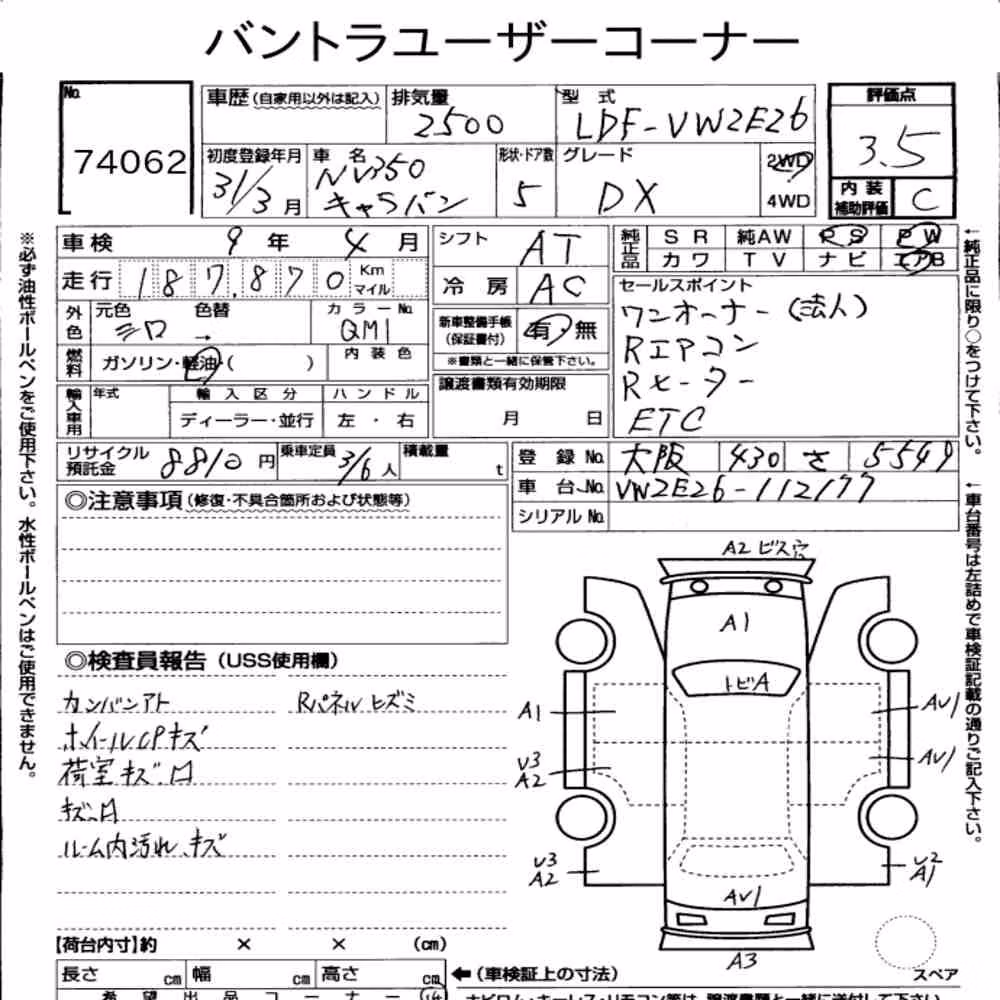 バントラユーザーコーナー
No. 74062
車歴(自家用以外は記入)
排気量 2500
型式 LDF-VW2E26
評価点 3.5
内装補助評価 C
初度登録年月 31/3月
車名 NV350 キャラバン
形状・ドア数 5
グレード DX
2WD
4WD
車検 9年 4月
走行 187,870 Km マイル
外色 元色 シロ 色替 → カラーNo. QM1
燃料 ガソリン・軽油・( ) 内装色
輸入車用 年式 輸入区分 ハンドル
ディーラー・並行 左・右
シフト AT
冷房 AC
新車整備手帳(保証書付) 有・無
※書類と一緒に保管下さい。
譲渡書類有効期限
月 日
純正品 SR 純AW PS PW
カワ TV ナビ エアB
セールスポイント
ワンオーナー(法人)
Rエアコン
Rヒーター
ETC
リサイクル預託金 8810円
乗車定員 3/6人
積載量 t
登録No. 大阪 430 さ 5549
車台No. VW2E26-112177
シリアルNo.
◎注意事項(修復・不具合箇所および状態等)
◎検査員報告(USS使用欄)
カンバンアト
Rパネル ヒズミ
ホイールCPキズ
荷室キズ.凹
キズ.凹
ルーム内汚れ.キズ
A2 ビス穴
A1
トビA
A1
V3
A2
V3
A2
AV1
AV1
V2
A1
AV1
A3
スペア
【荷台内寸】約 × × (cm)
長さ cm 幅 cm 高さ cm
←(車検証上の寸法)
希望出品コーナー
※必ず油性ボールペンをご使用下さい。水性ボールペンはご使用できません。
←純正品に限り○をつけて下さい。
←車台番号は左詰めで車検証記載の通りご記入下さい。